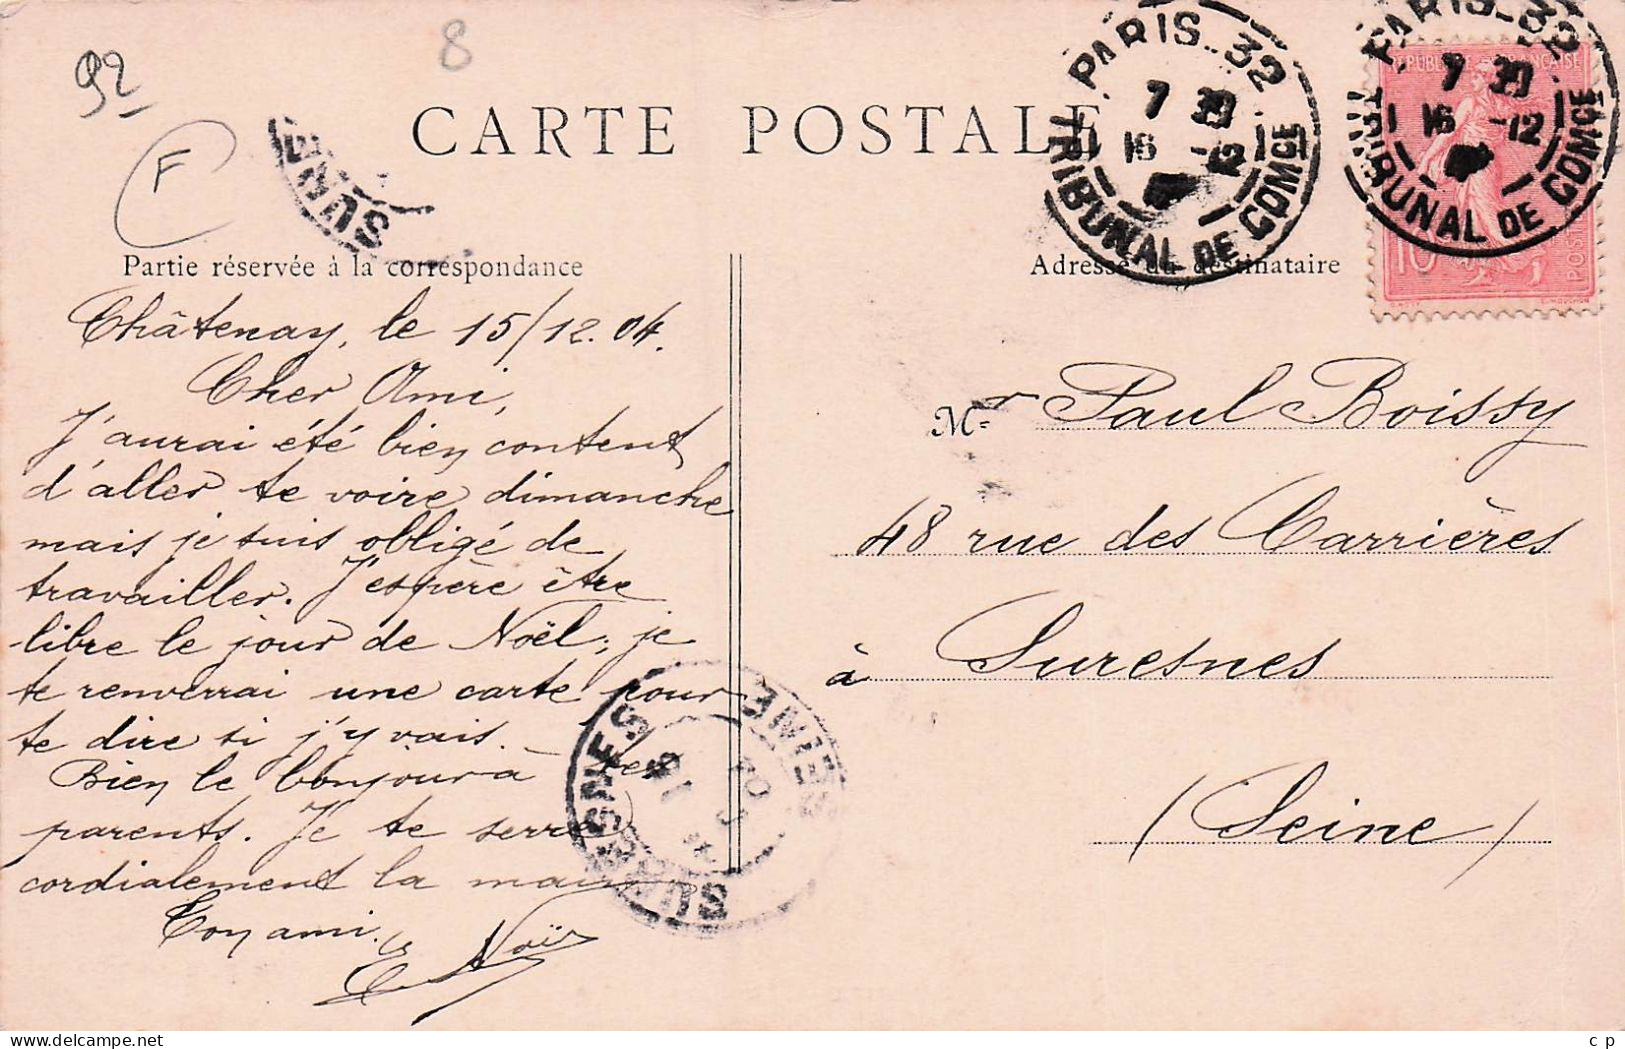 92
8
F
CARTE POSTALE
PARIS-32
7 30
16 -12
TRIBUNAL DE COMCE
PARIS-32
7 30
16 -12
TRIBUNAL DE COMCE
RÉPUBLIQUE FRANÇAISE
10
POSTES
Partie réservée à la correspondance
Adresse du destinataire
Châtenay, le 15/12.04.
Cher Ami,
J'aurai été bien content
d'aller te voire dimanche
mais je suis obligé de
travailler. J'espère être
libre le jour de Noël; je
te renverrai une carte pour
te dire si j'y vais.
Bien le bonjour à tes
parents. Je te serre
cordialement la main
Ton ami.
Mr Paul Boissy
48 rue des Carrières
à Suresnes
(Seine)
SURESNES
SEINE
delcampe.net
c p